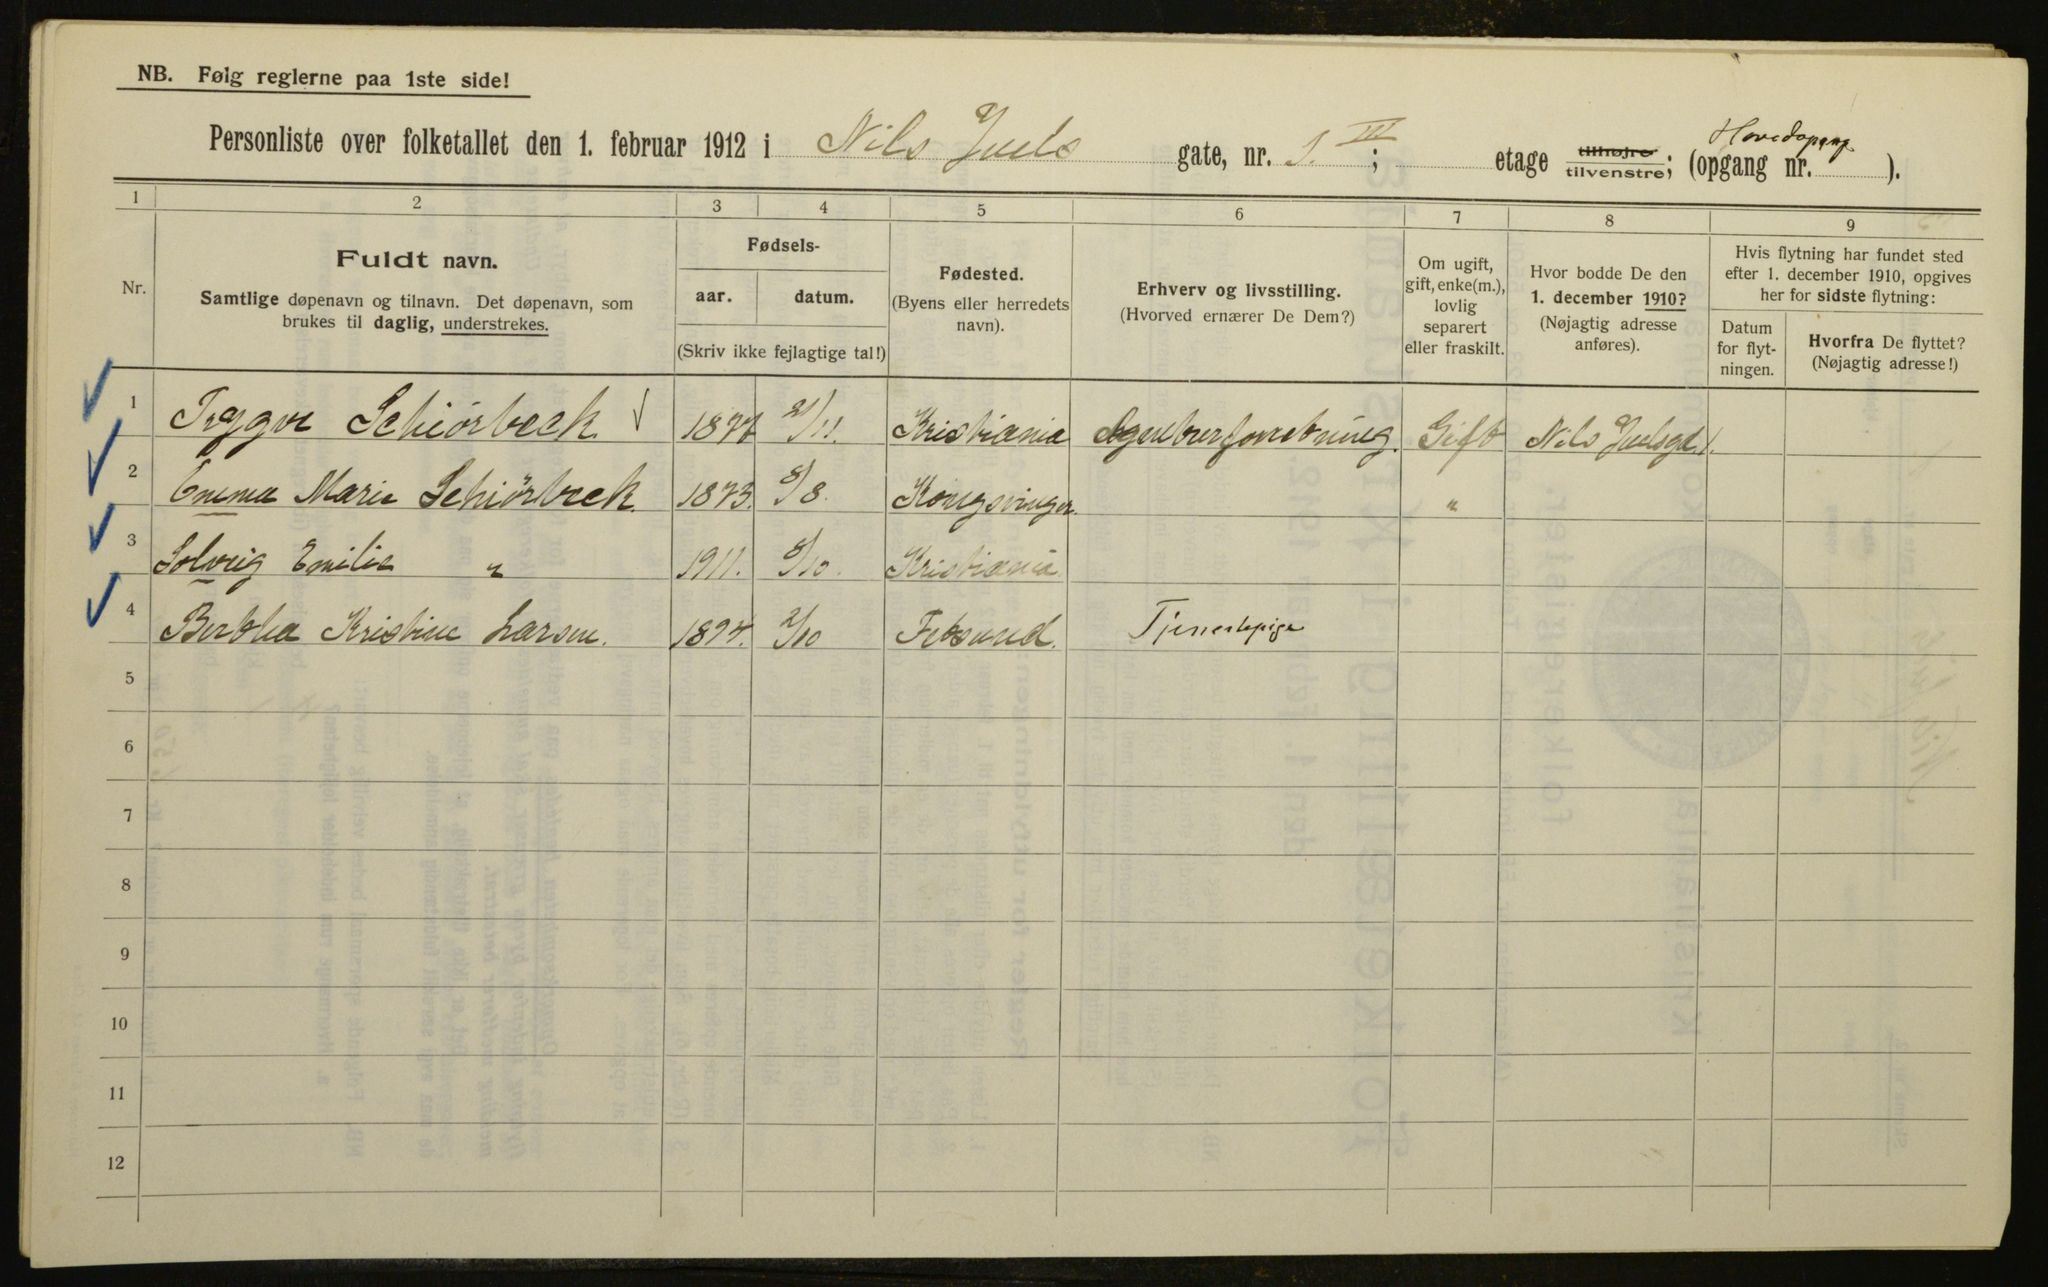 NB. Følg reglerne paa 1ste side!
Personliste over folketallet den 1. februar 1912 i Nils Juels gate, nr. 1. III; etage tilhøjre tilvenstre; (opgang nr. Hovedopgang ).
1 2 3 4 5 6 7 8 9
Nr.
Fuldt navn.
Samtlige døpenavn og tilnavn. Det døpenavn, som
brukes til daglig, understrekes.
Fødsels-
aar. datum.
(Skriv ikke fejlagtige tal!)
Fødested.
(Byens eller herredets
navn).
Erhverv og livsstilling.
(Hvorved ernærer De Dem?)
Om ugift,
gift, enke(m.),
lovlig
separert
eller fraskilt.
Hvor bodde De den
1. december 1910?
(Nøjagtig adresse
anføres).
Hvis flytning har fundet sted
efter 1. december 1910, opgives
her for sidste flytning:
Datum
for flyt-
ningen.
Hvorfra De flyttet?
(Nøjagtig adresse!)
1 Trygve Schiørbeck 21/11. Kristiania Agenturforretning. Gift Nils Juelsgd. 1.
2 Emma Marie Schiørbeck 1873. 8/8. Kongsvinger. "
3 Solveig Emilie " 1911. 8/10. Kristiania.
4 Bertha Kristine Larsen. 1894. 2/10 Fetsund. Tjenestepige
5
6
7
8
9
10
11
12